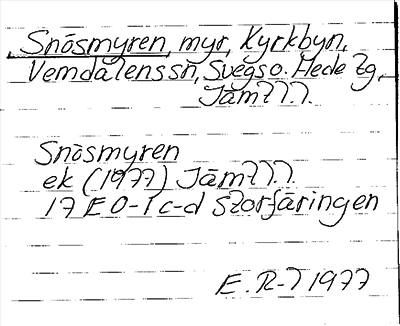 Snösmyren, myr, Kyrkbyn,
Vemdalens sn, Svegs o. Hede tg,
Jämtl.
Snösmyren
ek (1977) Jämtl.
17 E 0-1 c-d Storfäringen
E. R-7 1977